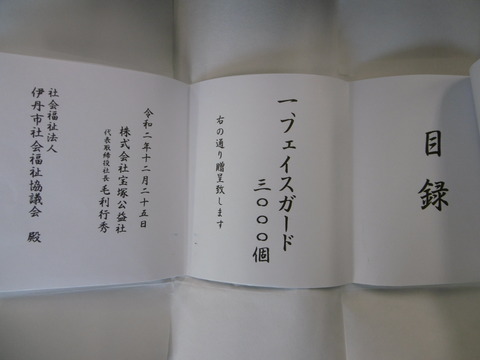 目録
一、フェイスガード
三〇〇〇個
右の通り贈呈致します
令和二年十二月二十五日
株式会社宝塚公益社
代表取締役社長 毛利行秀
社会福祉法人
伊丹市社会福祉協議会 殿